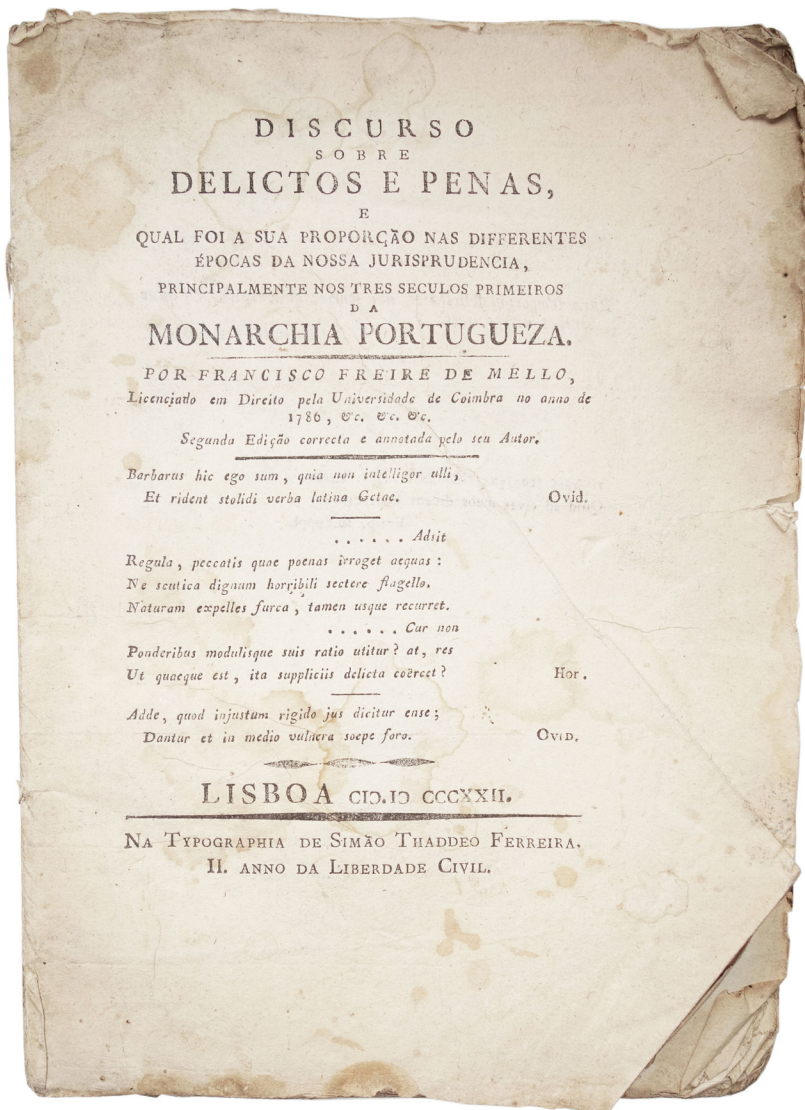 DISCURSO
SOBRE
DELICTOS E PENAS,
E
QUAL FOI A SUA PROPORÇÃO NAS DIFFERENTES
ÉPOCAS DA NOSSA JURISPRUDENCIA,
PRINCIPALMENTE NOS TRES SECULOS PRIMEIROS
DA
MONARCHIA PORTUGUEZA.
POR FRANCISCO FREIRE DE MELLO,
Licenciado em Direito pela Universidade de Coimbra no anno de
1786, &c. &c. &c.
Segunda Edição correcta e annotada pelo seu Autor.
Barbarus hic ego sum, quia non intelligor ulli,
Et rident stolidi verba latina Getae. Ovid.
...... Adsit
Regula, peccatis quae poenas irroget aequas:
Ne scutica dignum horribili sectere flagello.
Naturam expelles furca, tamen usque recurret.
...... Cur non
Ponderibus modulisque suis ratio utitur? at, res
Ut quaeque est, ita suppliciis delicta coërcet? Hor.
Adde, quod injustum rigido jus dicitur ense;
Dantur et in medio vulnera soepe foro. OVID.
LISBOA CIƆ.IƆ CCCXXII.
NA TYPOGRAPHIA DE SIMÃO THADDEO FERREIRA.
II. ANNO DA LIBERDADE CIVIL.